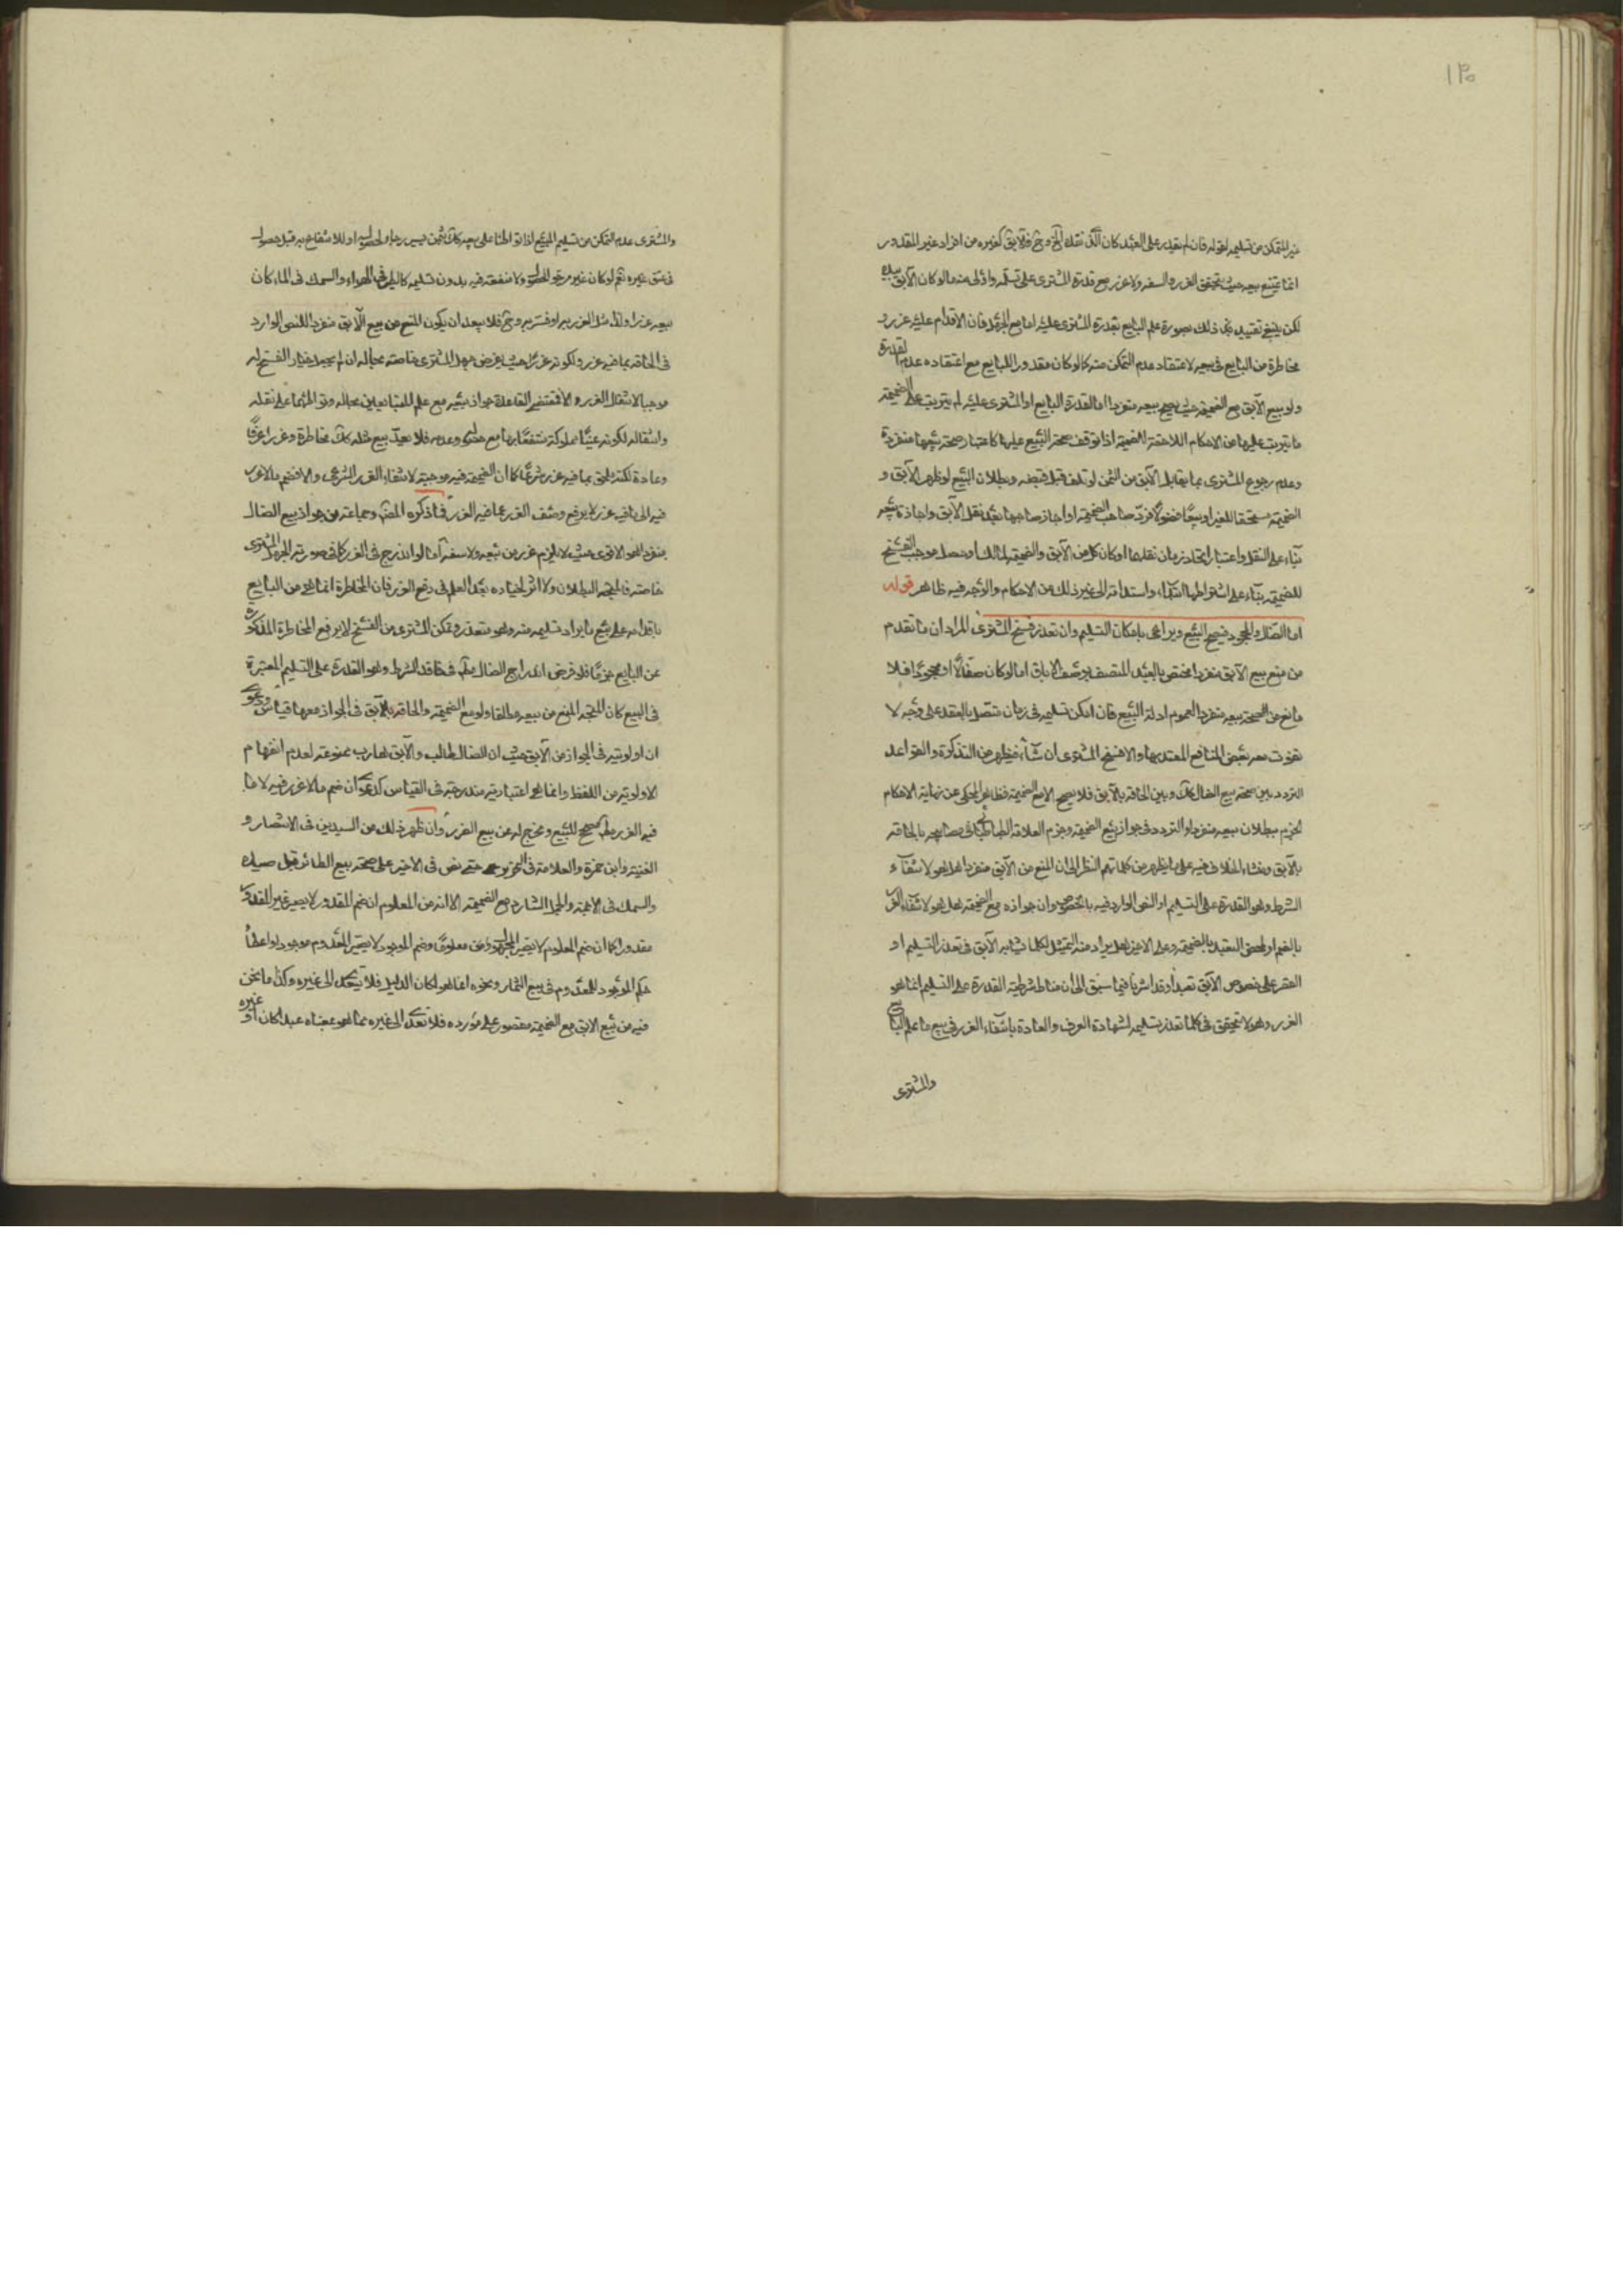 ١٣٥
غير المتمكن من تسليمه لقوله فان لم يقدر على العبد كان الذى نقده الخ وح فالآبق كغيره من افراد غير المقدور
انما يمتنع بيعه حيث يتحقق الغرر والسفه ولا غرر مع قدرة المشترى على تسلمه واولى منه ما لو كان الآبق بيده
لكن ينبغى تقييد ذلك بصورة علم البايع بقدرة المشترى عليه اما مع الجهل فان الاقدام عليه غرر و
مخاطرة من البايع فى بيعه لاعتقاد عدم التمكن منه كما لو كان مقدورا للبايع مع اعتقاده عدم القدرة
ولو بيع الآبق مع الضميمة حيث يصح بيعه منفردا اما لقدرة البايع او المشترى عليه لم يترتب على الضميمة
ما يترتب عليها من الاحكام اللاحقة للضميمة اذا توقف صحة البيع عليها كاعتبار صحة بيعها منفردة
وعدم رجوع المشترى بما يقابل الآبق من الثمن لو تلف قبل قبضه وبطلان البيع لو ظهر الآبق و
الضميمة مستحقا للغير او بيعا فضولا فرد صاحب الضميمة او اجاز صاحبها بعد نقل الآبق واجازة بيعه
بناء على النقل واعتبار اتحاد زمان نقلهما او كان كل من الآبق والضميمة لمالك او حصل موجب الفسخ
للضميمة بناء على اشتراطها ابتداء واستدامة الى غير ذلك من الاحكام والوجه فيه ظاهر قوله
اما الضال والمجحود فيصح البيع ويراعى بامكان التسليم وان تعذر فسخ المشترى المراد ان ما تقدم
من منع بيع الآبق منفردا مختص بالعبد المتصف بوصف الاباق اما لو كان ضالا او مجحودا فلا
مانع من الصحة بيعه منفردا لعموم ادلة البيع فان امكن تسليمه فى زمان متصل بالعقد على وجه لا
تفوت معه بعض المنافع المعتد بها والا فسخ المشترى ان شاء فيظهر من التذكرة والقواعد
التردد بين صحة بيع الضال كك وبين الحاقه بالآبق فلا يصح الا مع الضميمة المحكى عن نهاية الاحكام
الجزم ببطلان بيعه منفردا والتردد فى جواز بيع الضميمة وجزم العلامة الطباطبائى فى مصابيحه بالحاقه
بالآبق ومنشاء الخلاف فيه على ما يظهر من كلماتهم النظر الى ان المنع من الآبق منفردا هل هو لانتفاء
الشرط وهو القدرة على التسليم او النص الوارد فيه بالخصوص وان جوازه مع الضميمة هل هو لانتفاء الغرر
بالضم او لمحض التعبد بالضميمة وعلى الاخير هل يراد منه التمثيل لكل ما شابه الآبق فى تعذر التسليم او
القصر على خصوص الآبق تعبدا وقد اشرنا فيما سبق الى ان مناط شرطية القدرة على التسليم انما هو
الغرر وهو لا يتحقق فى كلما تعذر تسليمه لشهادة العرف والعادة بانتفاء الغرر فى بيع ما علم البايع
والمشترى
والمشترى عدم التمكن من تسليم المبيع اذا تواطئا على بيعه كك بثمن يسير رجاء لحصوله او للانتفاع به قبل حصوله
فى عتق غيره نعم لو كان غير مرجو الحصول ولا منفعة فيه بدون تسليمه كالطير فى الهواء والسمك فى الماء كان
بيعه غررا ولذا مثل الغرر به او فسر به وح فلا يبعد ان يكون المنع من بيع الآبق منفردا للنص الوارد
فى الحاقه بما فيه غرر ولكونه غررا حيث يفرض جهل المشترى خاصة بحاله ان لم يجعل خيار الفسخ له
موجبا لانتفاء الغرر والا فمقتضى القاعدة جواز بيعه مع علم المتبايعين بحاله وتواطئهما على نقله
وانتقاله لكونه عينا مملوكة منتفعا بها مع عتقه وعدمه فلا يعد بيع مثله كك مخاطرة وغررا عرفا
وعادة لكنه ملحق بما فيه غرر شرعا كما ان الضميمة فيه موجبة لانتفاء الغرر الشرعى والا فضم ما لا غرر
فيه الى ما فيه غرر لا يرفع وصف الغرر عما فيه الغرر فما ذكره المص وجماعة من جواز بيع الضال
منفردا هو الاقوى حيث لا يلزم غرر من بيعه ولا سفه اما لو اندرج فى الغرر كما فى صورة الجهل المشترى
خاصة فالمتجه البطلان ولا اثر لخياره بعد العلم فى دفع الغرر فان المخاطرة انما هى من البايع
باقدامه على بيع ما يراد تسليمه منه وهو متعذر وتمكن المشترى من الفسخ لا يرفع المخاطرة المذكورة
عن البايع جزما فلو فرض اندراج الضال فى فاقد الشرط وهو القدرة على التسليم المعتبرة
فى البيع كان المتجه المنع من بيعه مطلقا ولو مع الضميمة والحاقه بالآبق فى الجواز معها قياس ودعوى
ان اولويته فى الجواز من الآبق حيث ان الضال طالب والآبق هارب ممنوعة لعدم انفهام
الاولوية من اللفظ وانما هى اعتبارية مندرجة فى القياس كدعوى ان ضم ما لا غرر فيه لا ما
فيه الغرر مصحح للبيع ومخرج له عن بيع الغرر وان ظهر ذلك من السيدين فى الانتصار و
الغنية وابن حمزة والعلامة فى التحرير حتى نص فى الاخير على صحة بيع الطائر قبل صيده
والسمك فى الاجمة والجمل الشارد مع الضميمة الا انه من المعلوم ان ضم المقدور لا يصير غير المقدور
مقدورا كما ان ضم المعلوم لا يصير المجهول معلوما وضم الموجود لا يصير المعدوم موجودا واعطاء
حكم الموجود للمعدوم فى بيع الثمار ونحوه انما هو لمكان الدليل فلا يتعدى الى غيره وكذا ما نحن
فيه من بيع الآبق مع الضميمة مقصور على مورده فلا تعدى الى غيره مما هو بمعناه عبدا كان او غيره